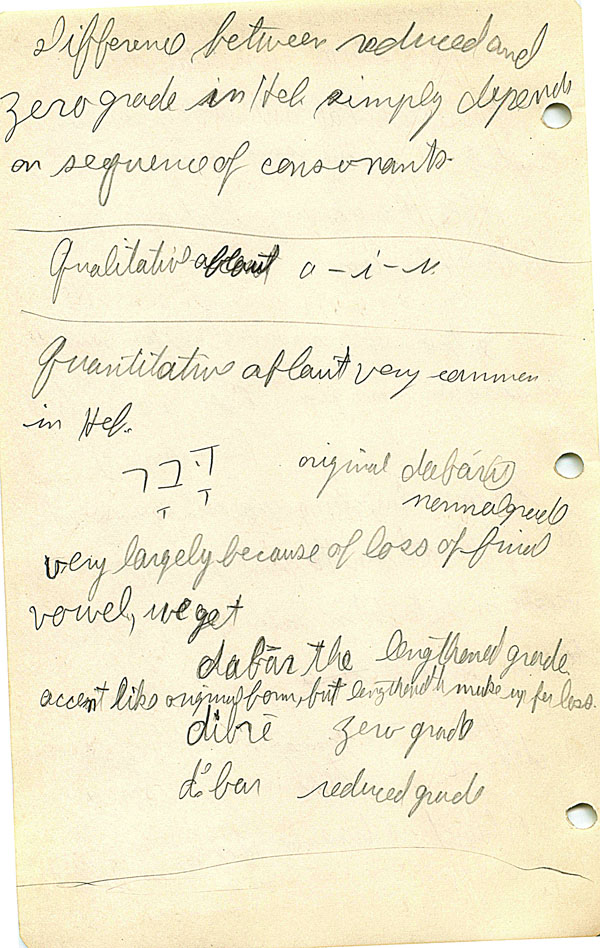 Difference between reduced and
zero grade in Heb. simply depends
on sequence of consonants.
Qualitative ablaut a – i – u
Quantitative ablaut very common
in Heb.
דָּבָר original dabáru
normal grade
very largely because of loss of final
vowel, we get
dabār the lengthened grade.
accent like original form, but lengthened to make up for loss.
dibrē zero grade
dᵉbar reduced grade